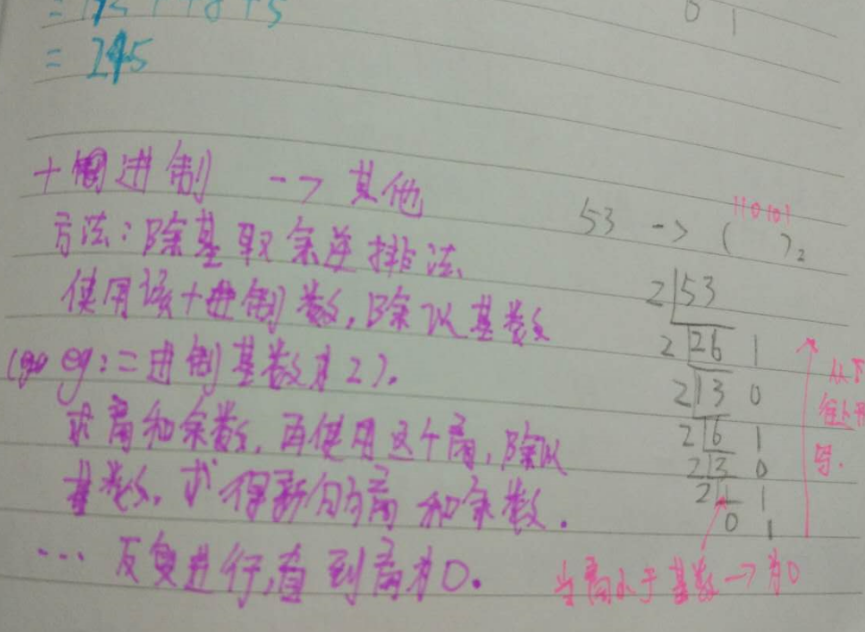 = 245
0 1
十进制 --> 其他
方法:除基取余逆排法
使用该十进制数,除以基数
(eg:二进制基数为2).
求商和余数,再使用这个商,除以
基数,求得新的商和余数.
… 反复进行,直到商为0.
53 -> (110101)₂
2 53
2 26 1
2 13 0
2 6 1
2 3 0
2 1 1
0 1
从下
往上
写.
当商小于基数 -> 为0